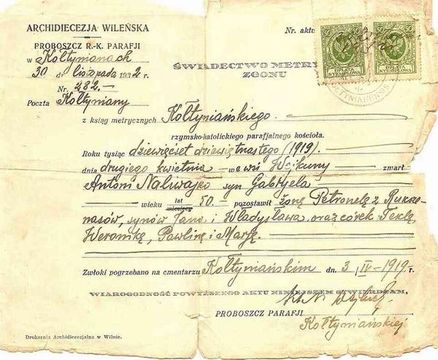 ARCHIDIECEZJA WILEŃSKA
PROBOSZCZ R.-K. PARAFJI
w Kołtynianach
30 d. listopada 1932 r.
Nr. 482.
Poczta Kołtyniany
Nr. aktu
ŚWIADECTWO METRY
ZGONU
z ksiąg metrycznych Kołtyniańskiego
rzymsko-katolickiego parafjalnego kościoła.
Roku tysiąc dziewięćset dziewiętnastego (1919)
dnia drugiego kwietnia we wsi Wejkuny zmarł
Antoni Naliwajko syn Gabryela
wieku lat 50 pozostawił żonę Petronelę z
nasów, synów Jana i Władysława oraz córek Teklę
Weronikę, Pawlinę i Marję
Zwłoki pogrzebano na cmentarzu Kołtyniańskim dn. 3 IV - 1919 r.
WIAROGODNOŚĆ POWYŻSZEGO AKTU NINIEJSZEM STWIERDZAM,
PROBOSZCZ PARAFJI
Kołtyniańskiej
Drukarnia Archidiecezjalna w Wilnie.